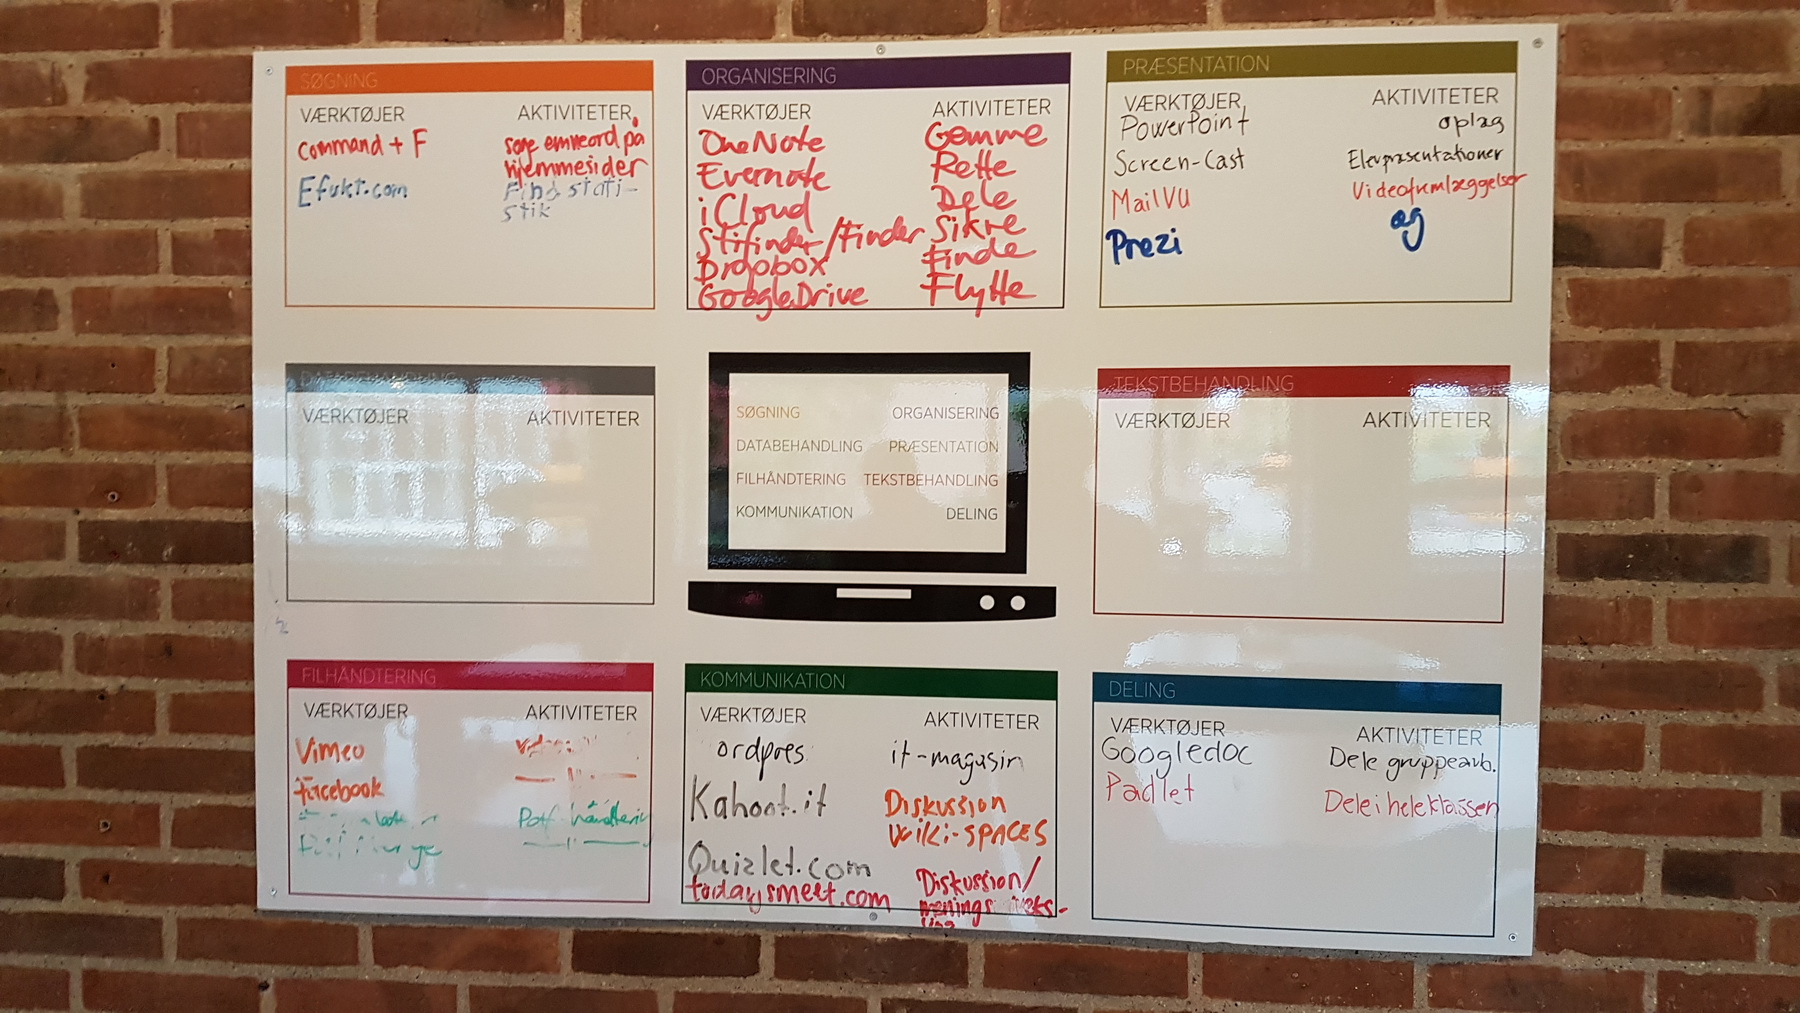 SØGNING
VÆRKTØJER
command + F
Efukt.com
AKTIVITETER
søge emneord på
hjemmesider
Find stati-
stik
ORGANISERING
VÆRKTØJER
OneNote
Evernote
iCloud
Stifinder/Finder
Dropbox
GoogleDrive
AKTIVITETER
Gemme
Rette
Dele
Sikre
Finde
Flytte
PRÆSENTATION
VÆRKTØJER
PowerPoint
Screen-Cast
MailVU
Prezi
AKTIVITETER
oplæg
Elevpræsentationer
Videofremlæggelser
og
DATABEHANDLING
VÆRKTØJER
AKTIVITETER
SØGNING ORGANISERING
DATABEHANDLING PRÆSENTATION
FILHÅNDTERING TEKSTBEHANDLING
KOMMUNIKATION DELING
TEKSTBEHANDLING
VÆRKTØJER
AKTIVITETER
FILHÅNDTERING
VÆRKTØJER
Vimeo
facebook
AKTIVITETER
håndterin
KOMMUNIKATION
VÆRKTØJER
ordpres
Kahoot.it
Quizlet.com
todaysmeet.com
AKTIVITETER
it-magasin
Diskussion
Wiki-SPACES
Diskussion/
menings
DELING
VÆRKTØJER
Googledoc
Padlet
AKTIVITETER
Dele gruppearb.
Dele i hele klassen